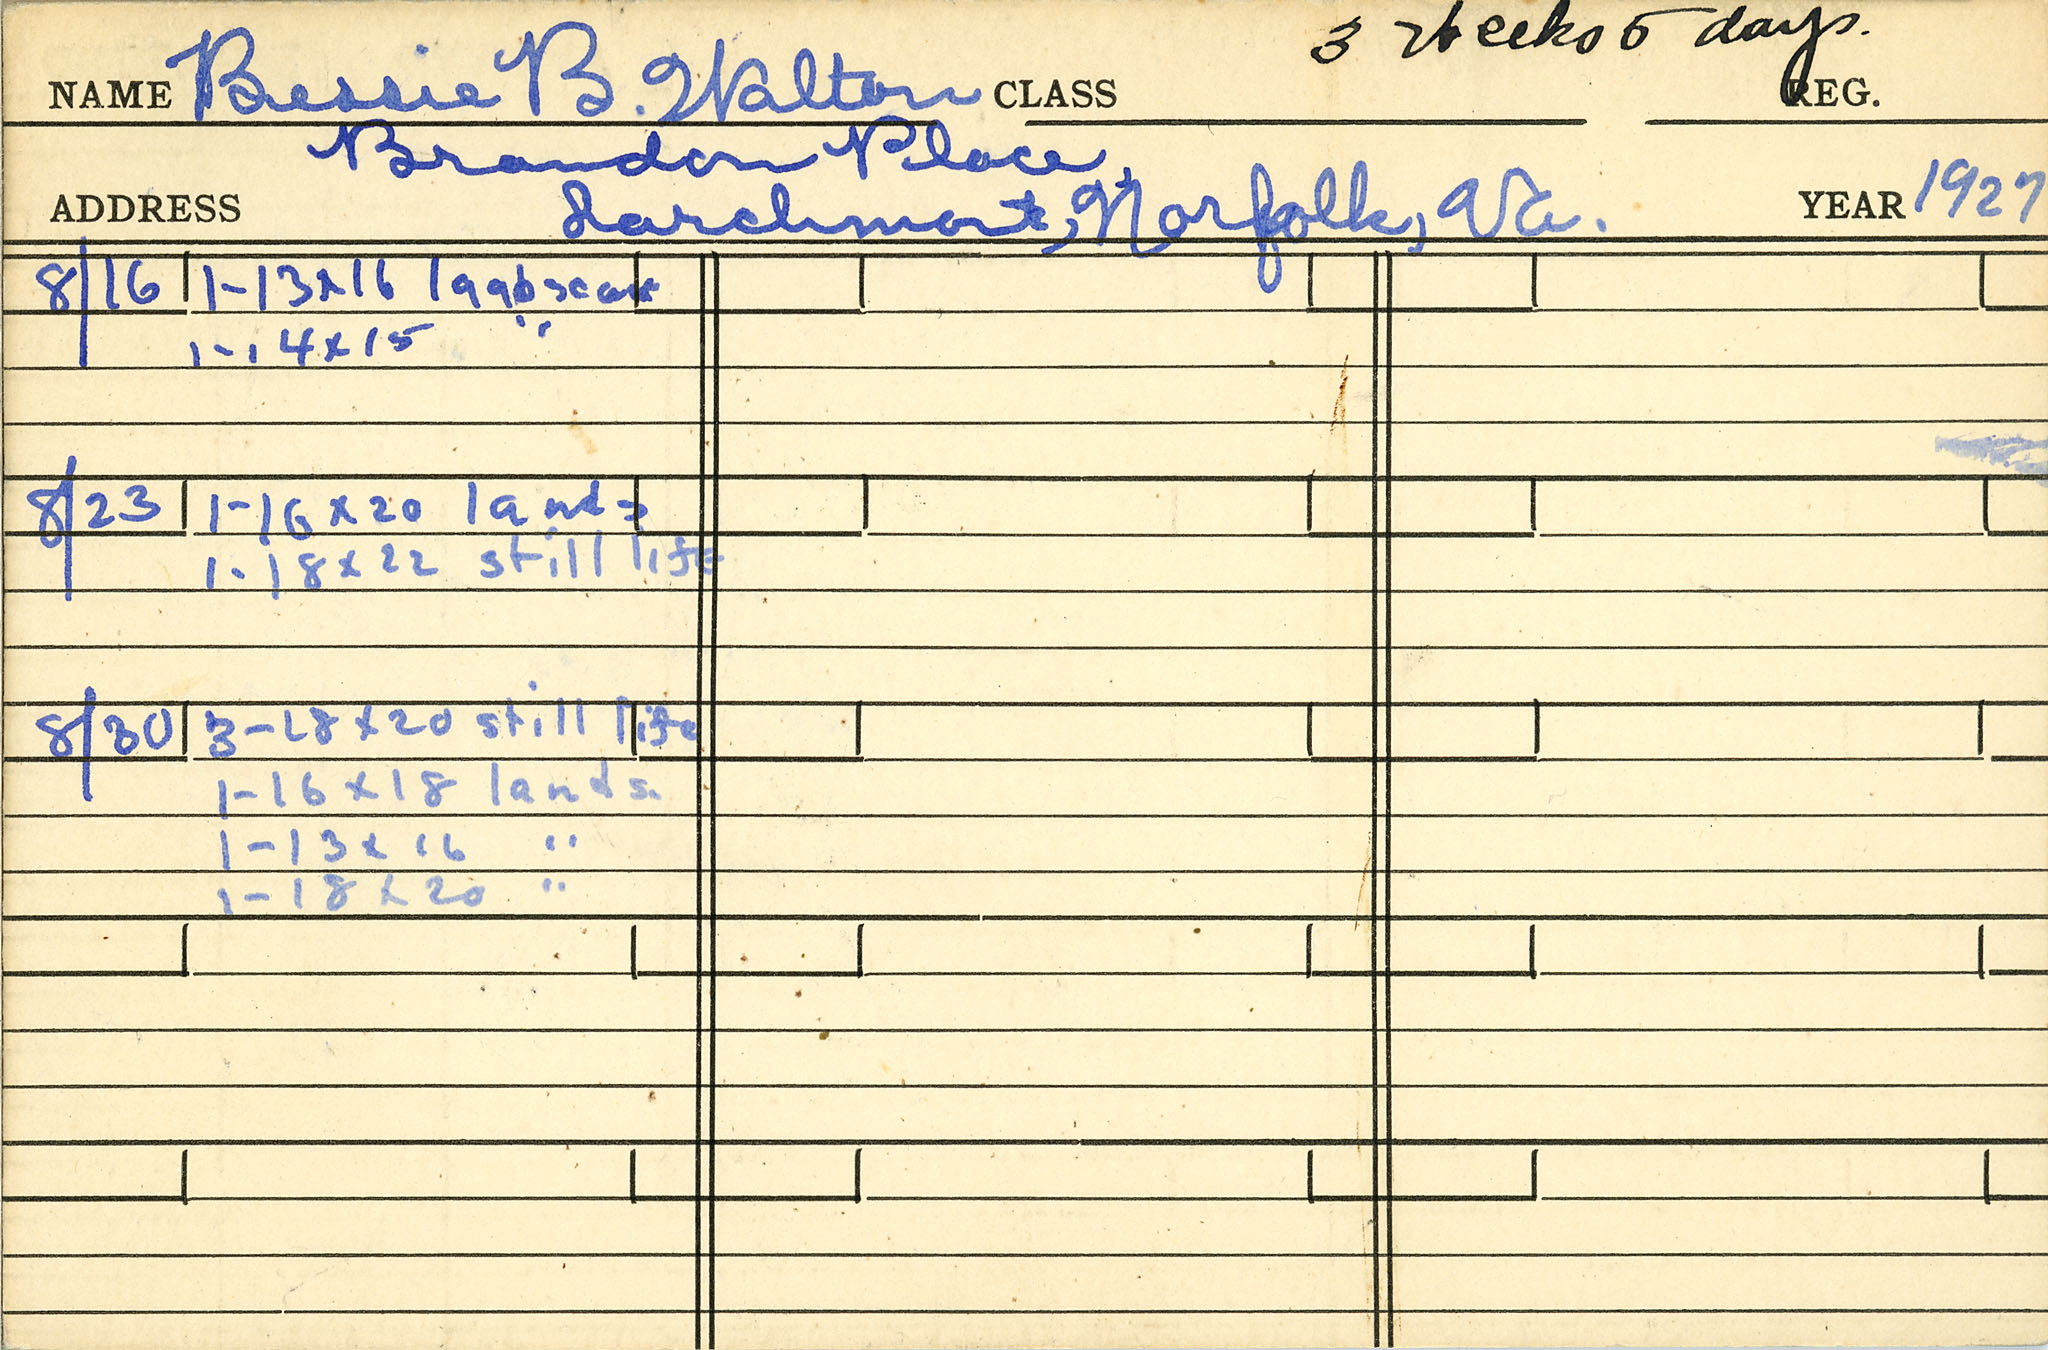 3 Weeks 5 days.
NAME Bessie B. Walton CLASS REG.
Brandon Place,
ADDRESS Larchmont, Norfolk, Va. YEAR 1927
8/16 1-13x16
1-14x15 "
8/23 1-16x20 lands
1-18x22 still life
8/30 3-18x20 still life
1-16x18 lands.
1-13x16 "
1-18x20 "